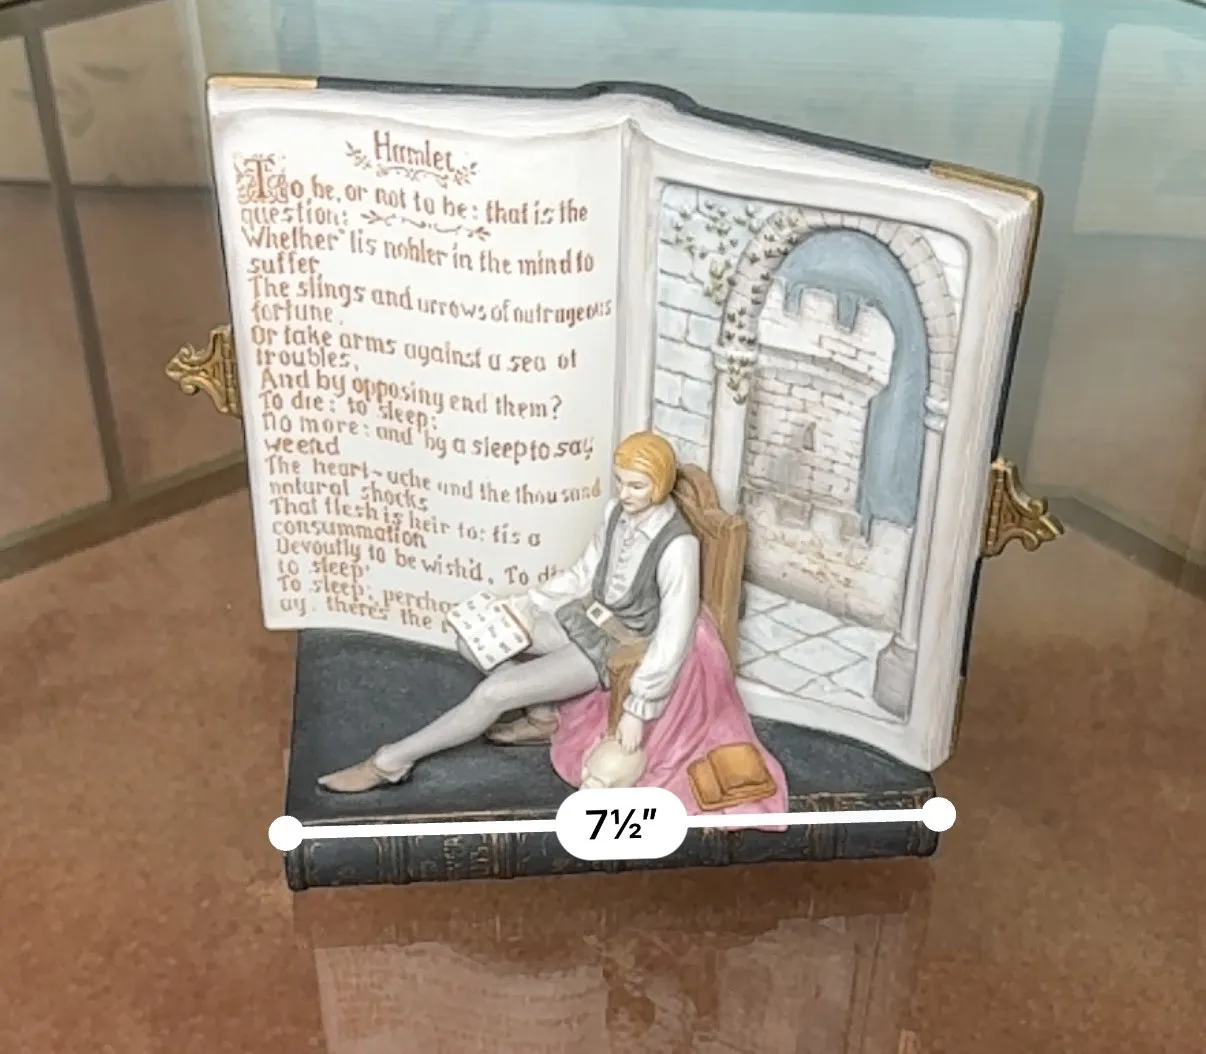 Hamlet
To be, or not to be: that is the
question:
Whether 'tis nobler in the mind to
suffer
The slings and arrows of outrageous
fortune,
Or take arms against a sea of
troubles,
And by opposing end them?
To die: to sleep:
No more: and by a sleep to say
we end
The heart-ache and the thousand
natural shocks
That flesh is heir to: tis a
consummation
Devoutly to be wish'd. To di
to sleep
To sleep: percha
ay. there's the
7½"